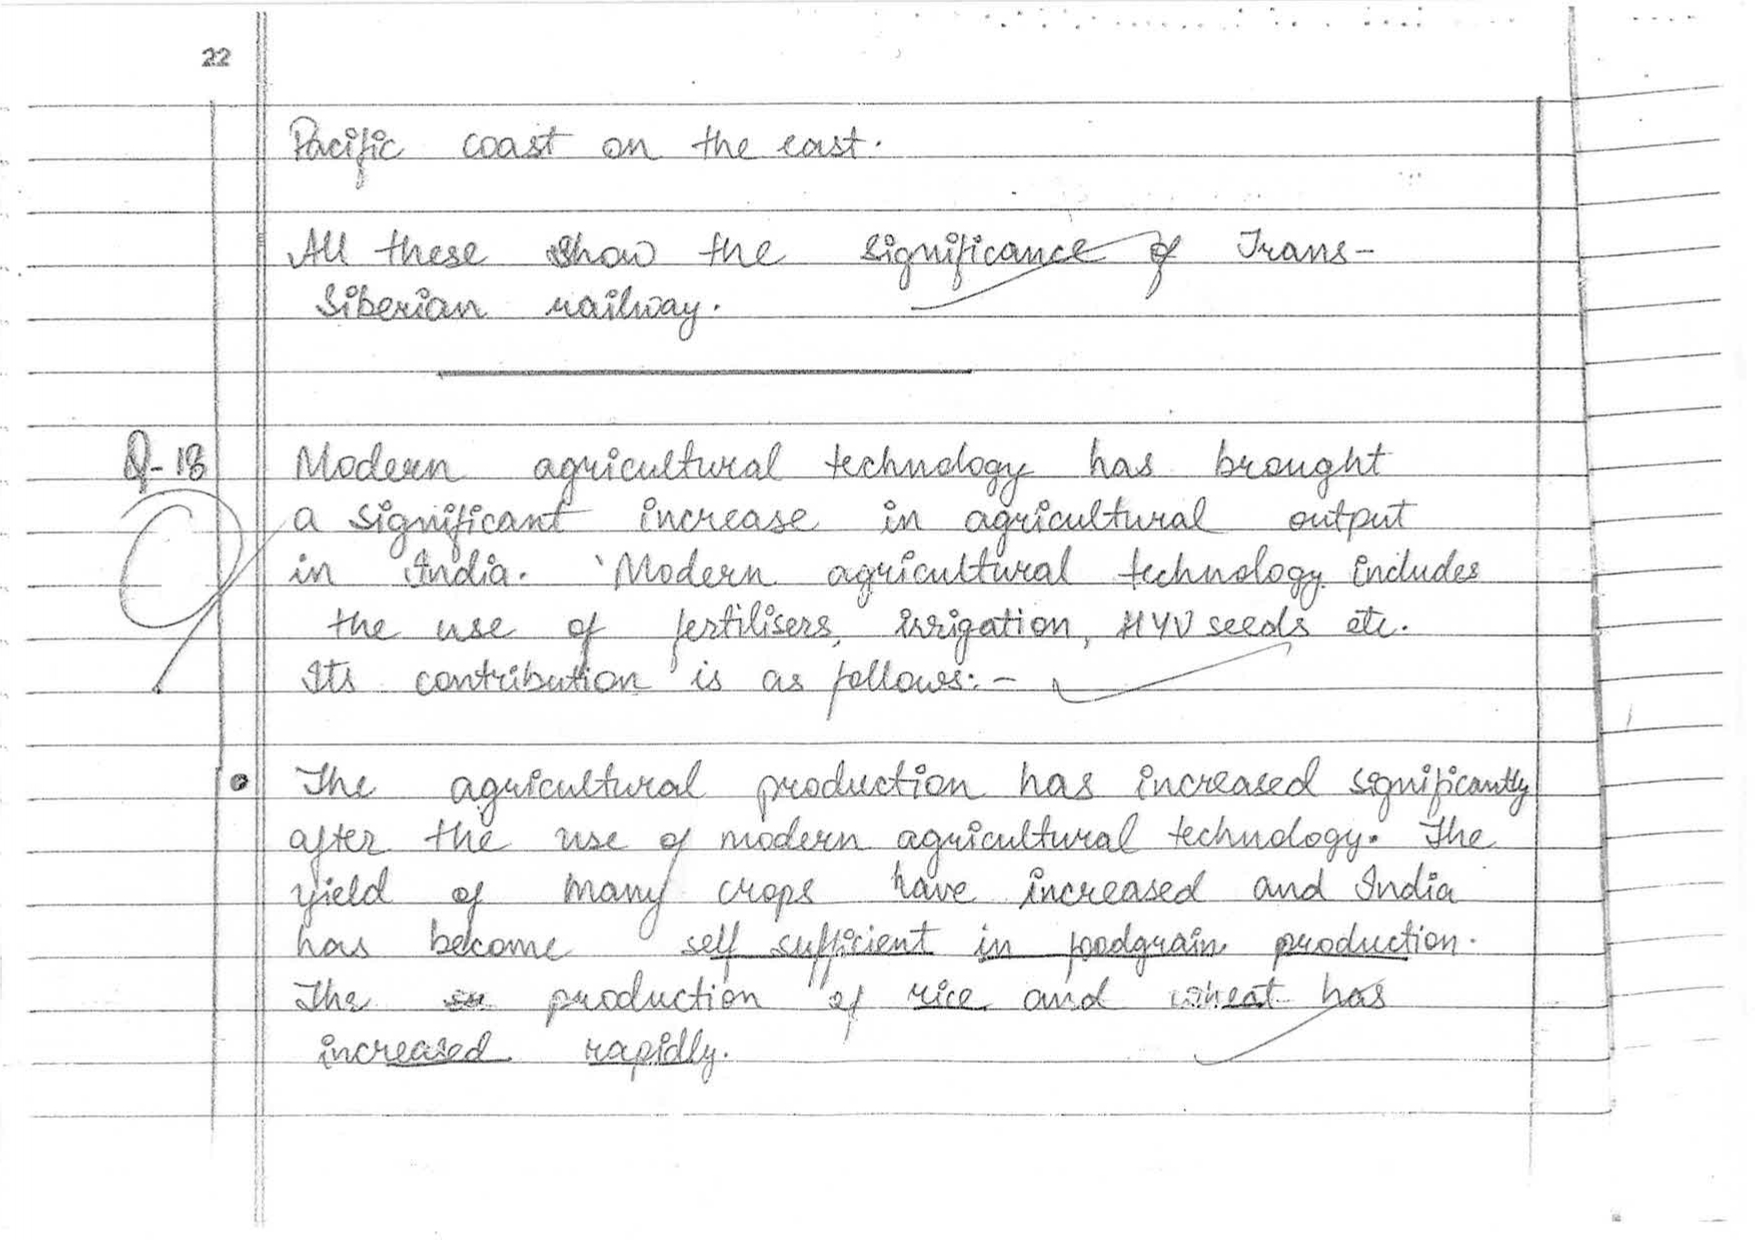 22
Pacific coast on the east.
All these show the significance of Trans-
Siberian railway.
Q-18
Modern agricultural technology has brought
a significant increase in agricultural output
in India. Modern agricultural technology includes
the use of fertilisers, irrigation, HYV seeds etc.
Its contribution is as follows:-
• The agricultural production has increased significantly
after the use of modern agricultural technology. The
yield of many crops have increased and India
has become self sufficient in foodgrain production.
The production of rice and wheat has
increased rapidly.